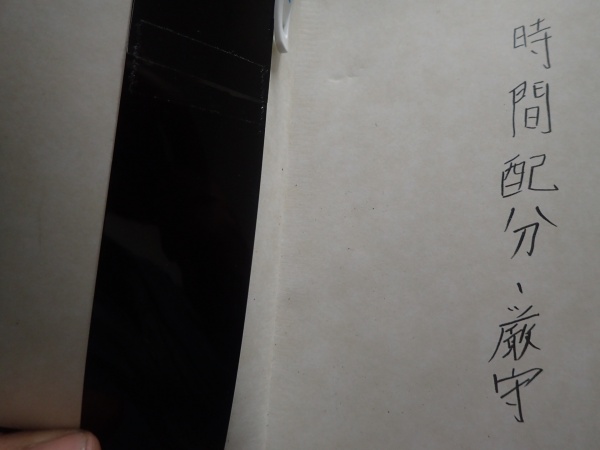 時間配分、厳守